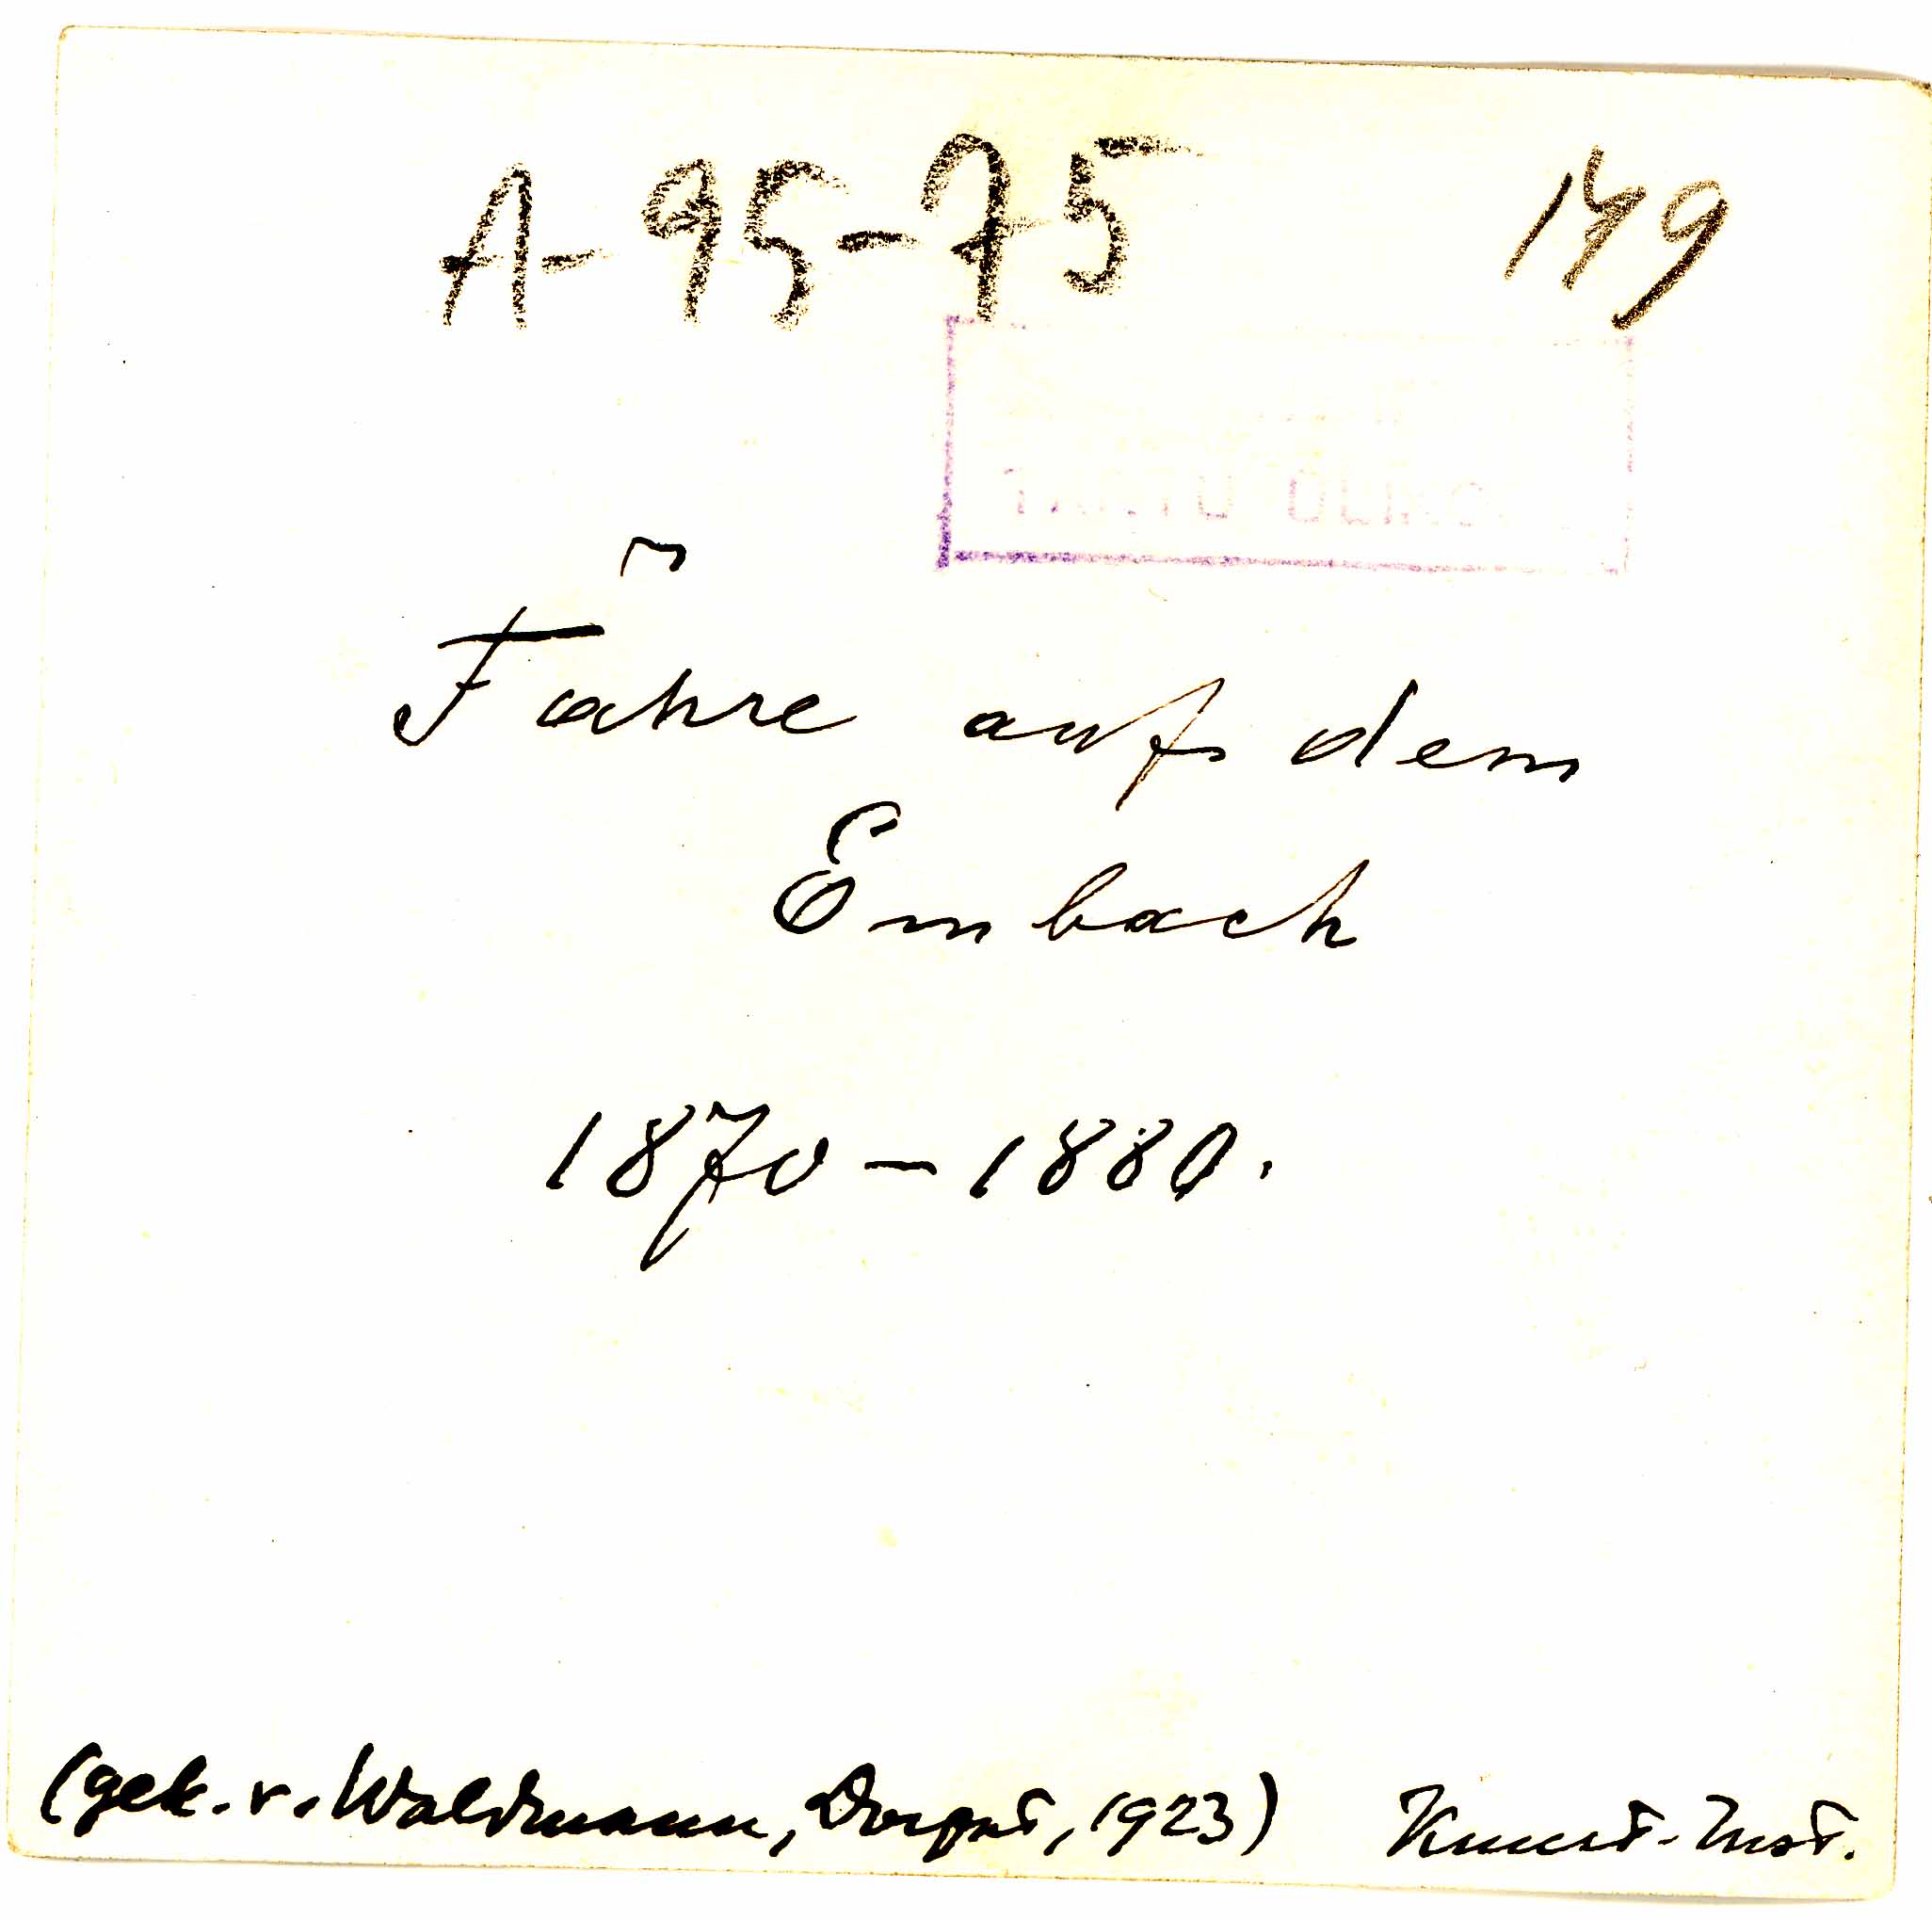 A-95-75 149
TARTU ÜLIKO
Fähre auf dem
Embach
1870 – 1880.
(gek. v. Waldmann, Dorpat, 1923) Kunst-Inst.